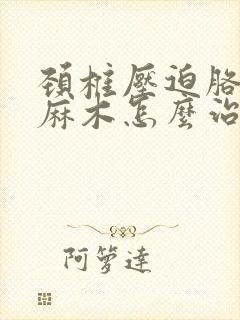 頚椎壓迫胳
麻木怎麼治
阿箩達